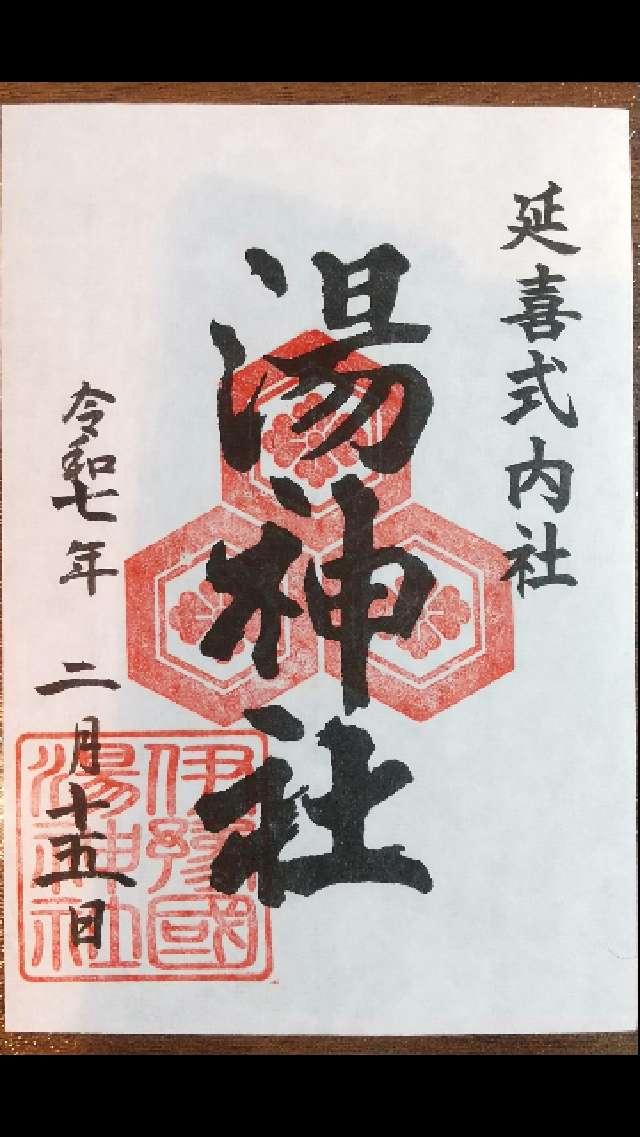 延喜式内社
湯神社
令和七年 二月十五日
伊豫國
湯神社